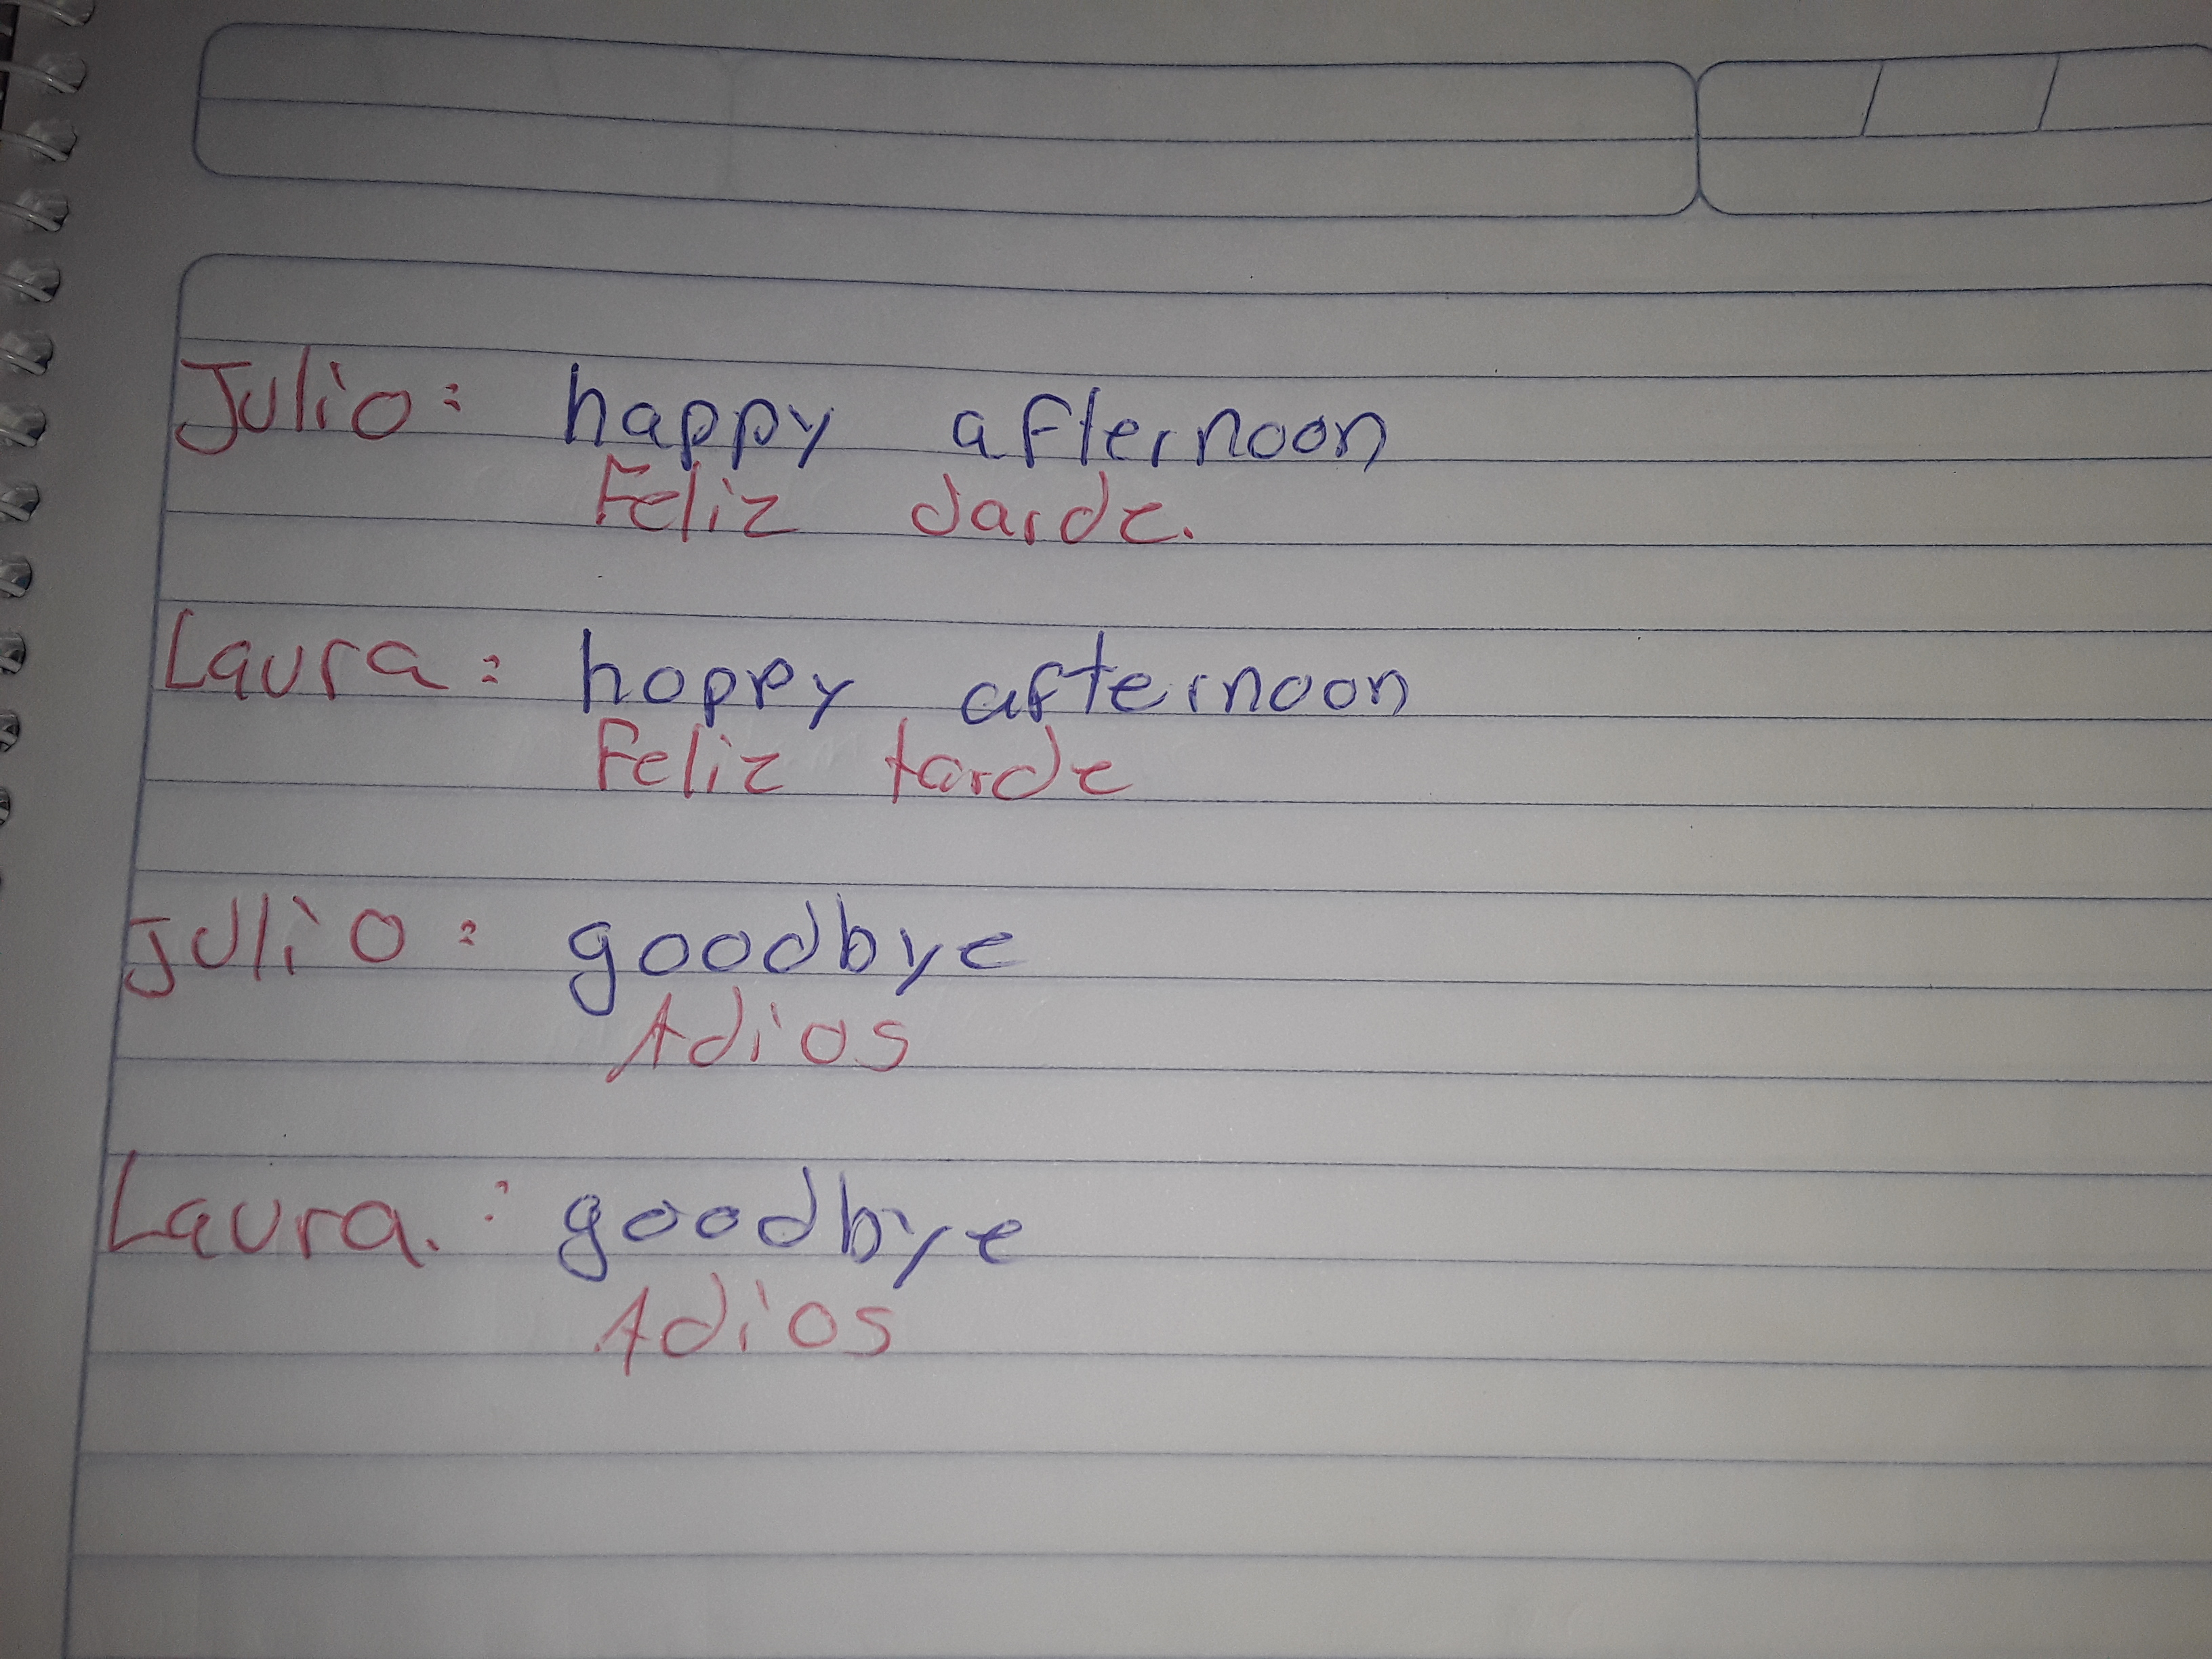 Julio: happy afternoon
Feliz tarde.
Laura: hoppy afternoon
Feliz tarde
Julio: goodbye
Adios
Laura.: goodbye
Adios